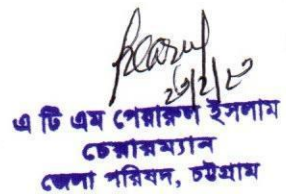 ২০/২/২৩
এ টি এম পেয়ারুল ইসলাম
চেয়ারম্যান
জেলা পরিষদ, চট্টগ্রাম